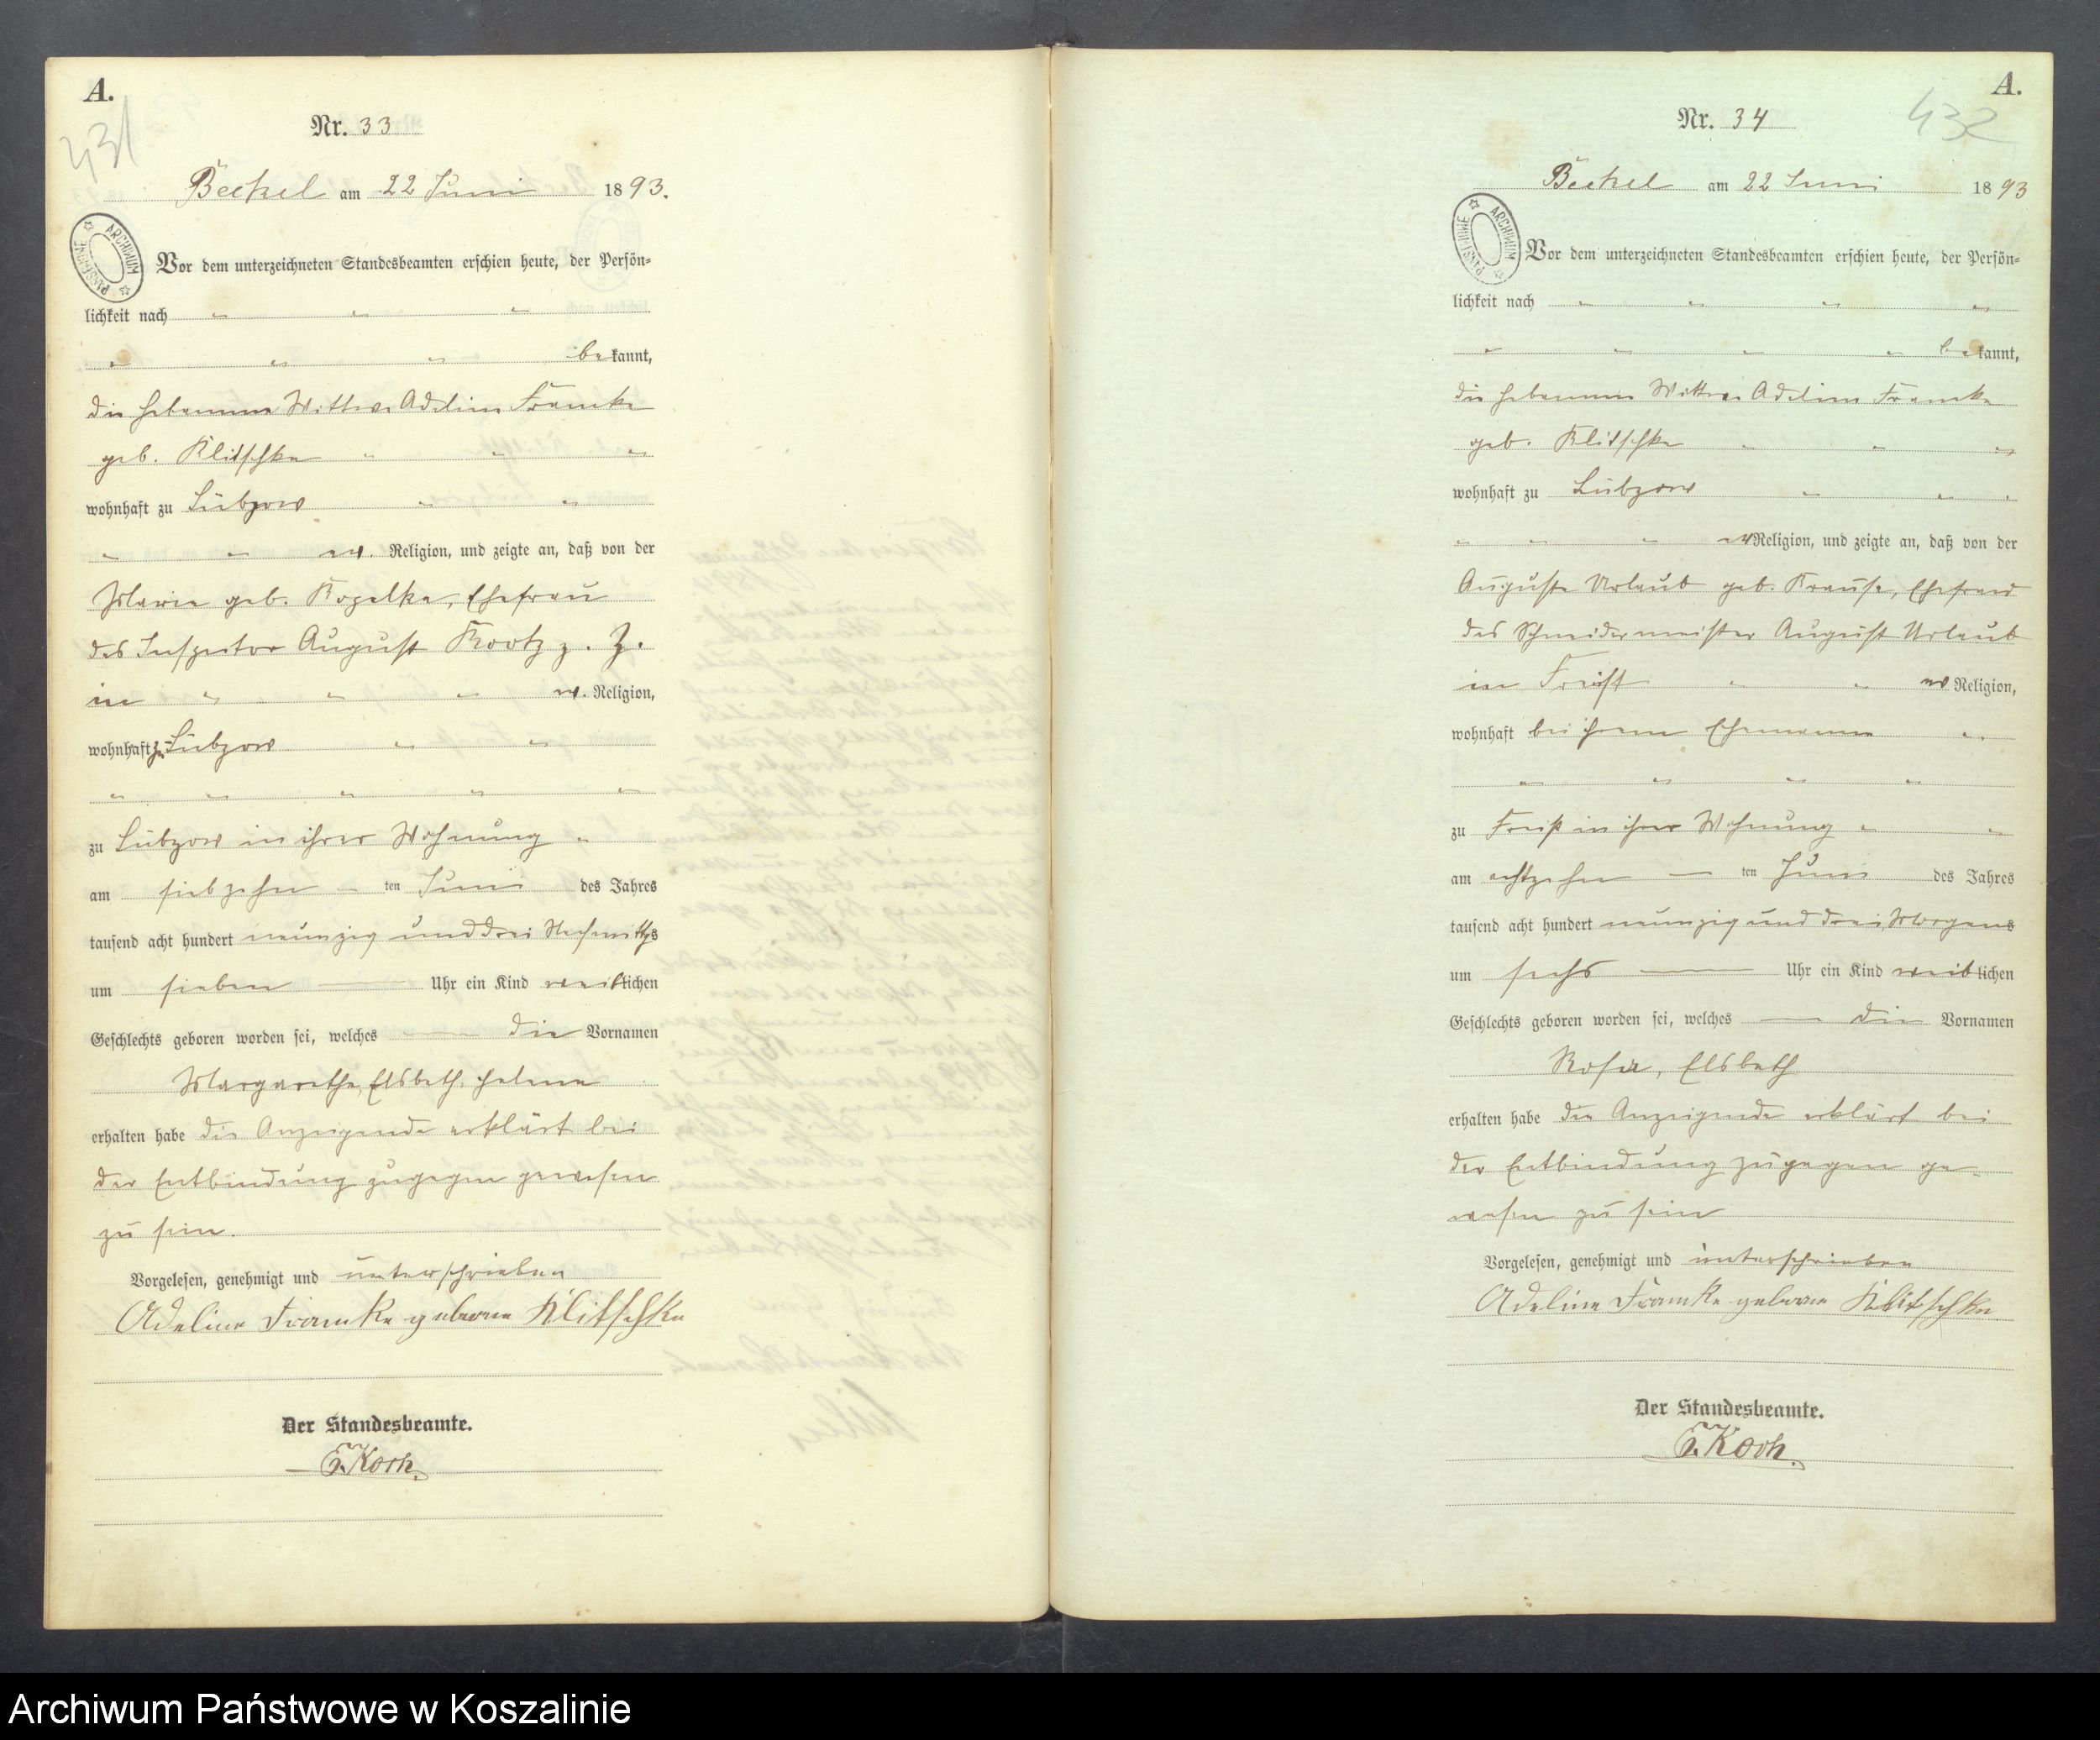 A.
431
Nr. 33
Beckel am 22 Juni 1893.
ARCHIWUM PAŃSTWOWE
Vor dem unterzeichneten Standesbeamten erschien heute, der Persön-
lichkeit nach
bekannt,
die Hebamme Wittwe Adeline Framke
geb. Klitschke
wohnhaft zu Lübzow
ev. Religion, und zeigte an, daß von der
Marie geb. Kozelke, Ehefrau
des Inspector August Krootz z. Z.
in ev. Religion,
wohnhaft zu Lübzow
zu Lübzow in ihrer Wohnung
am siebzehn ten Juni des Jahres
tausend acht hundert neunzig und drei Nachmittgs
um sieben Uhr ein Kind weiblichen
Geschlechts geboren worden sei, welches die Vornamen
Margarethe, Elsbeth, Helene
erhalten habe die Anzeigende erklärt bei
der Entbindung zugegen gewesen
zu sein.
Vorgelesen, genehmigt und unterschrieben
Adeline Framke geborne Klitschke
Der Standesbeamte.
Koch.
A.
432
Nr. 34
Beckel am 22 Juni 1893
ARCHIWUM PAŃSTWOWE
Vor dem unterzeichneten Standesbeamten erschien heute, der Persön-
lichkeit nach
bekannt,
die Hebamme Wittwe Adeline Framke
geb. Klitschke
wohnhaft zu Lübzow
ev Religion, und zeigte an, daß von der
Auguste Urlaub geb. Krause, Ehefrau
des Schneidermeister August Urlaub
in Freist ev Religion,
wohnhaft bei ihrem Ehemanne
zu Freist in ihrer Wohnung
am achtzehn ten Juni des Jahres
tausend acht hundert neunzig und drei Morgens
um sechs Uhr ein Kind weiblichen
Geschlechts geboren worden sei, welches die Vornamen
Rosa, Elsbeth
erhalten habe die Anzeigende erklärt bei
der Entbindung zugegen ge-
wesen zu sein
Vorgelesen, genehmigt und unterschrieben
Adeline Framke geborne Klitschke
Der Standesbeamte.
Koch.
Archiwum Państwowe w Koszalinie